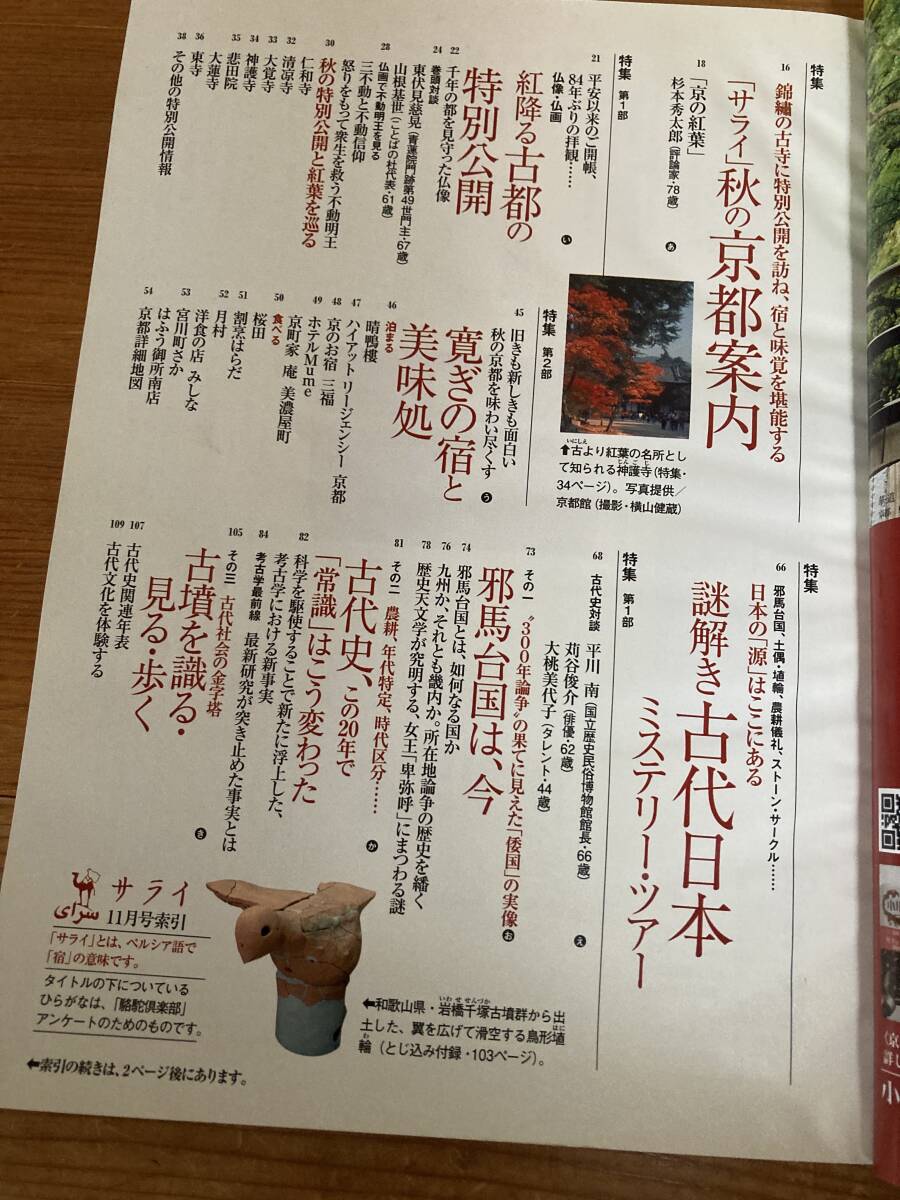 特集
16 錦繡の古寺に特別公開を訪ね、宿と味覚を堪能する
「サライ」秋の京都案内
18 「京の紅葉」
杉本秀太郎(評論家・78歳) あ
特集 第1部
21 平安以来のご開帳、
84年ぶりの拝観……
仏像・仏画
紅降る古都の
特別公開 い
22 千年の都を見守った仏像
24 巻頭対談
東伏見慈晃(青蓮院門跡第49世門主・67歳)
山根基世(ことばの杜代表・61歳)
28 仏画で不動明王を見る
三不動と不動信仰
怒りをもって衆生を救う不動明王
30 秋の特別公開と紅葉を巡る
32 仁和寺
33 清凉寺
34 大覚寺
35 神護寺
悲田院
36 大蓮寺
東寺
38 その他の特別公開情報
↑古より紅葉の名所とし
て知られる神護寺(特集・
34ページ)。写真提供/
京都館(撮影・横山健蔵)
いにしえ
じんごじ
特集 第2部
45 旧きも新しきも面白い
秋の京都を味わい尽くす う
寛ぎの宿と
美味処
46 泊まる
晴鴨樓
47 ハイアット リージェンシー 京都
48 京のお宿 三福
49 ホテルMume
京町家 庵 美濃屋町
50 食べる
桜田
51 割烹はらだ
52 月村
53 洋食の店 みしな
宮川町さか
はふう御所南店
54 京都詳細地図
特集
66 邪馬台国、土偶・埴輪、農耕儀礼、ストーン・サークル……
日本の「源」はここにある
謎解き古代日本
ミステリー・ツアー
特集 第1部
68 古代史対談
平川 南(国立歴史民俗博物館館長・66歳)
苅谷俊介(俳優・62歳)
大桃美代子(タレント・44歳) え
73 その一 “300年論争”の果てに見えた「倭国」の実像 お
邪馬台国は、今
74 邪馬台国とは、如何なる国か
76 九州か、それとも畿内か。所在地論争の歴史を繙く
78 歴史天文学が究明する、女王「卑弥呼」にまつわる謎
81 その二 農耕、年代特定、時代区分…… か
古代史、この20年で
「常識」はこう変わった
82 科学を駆使することで新たに浮上した、
考古学における新事実
84 考古学最前線 最新研究が突き止めた事実とは
105 その三 古代社会の金字塔 き
古墳を識る・
見る・歩く
107 古代史関連年表
109 古代文化を体験する
サライ
سرای
11月号索引
「サライ」とは、ペルシア語で
「宿」の意味です。
タイトルの下についている
ひらがなは、「駱駝倶楽部」
アンケートのためのものです。
←和歌山県・岩橋千塚古墳群から出
土した、翼を広げて滑空する鳥形埴
輪(とじ込み付録・103ページ)。
いわせせんづか
はに
わ
←索引の続きは、2ページ後にあります。
詳し
小